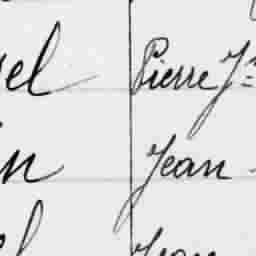 el Pierre J
in Jean
el Jean